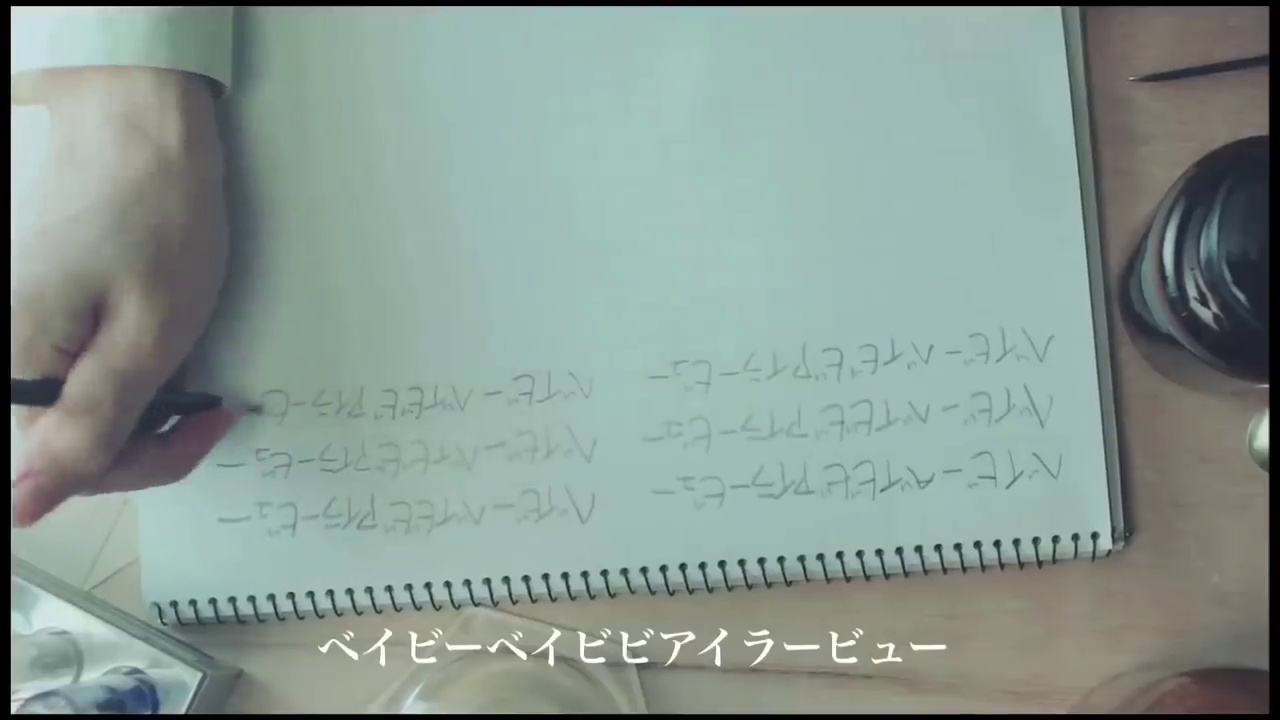 ベイビーベイビビアイラービュー
ベイビーベイビビアイラービュー
ベイビーベイビビアイラービュー
ベイビーベイビビアイラービュー
ベイビーベイビビアイラービュー
ベイビーベイビビアイラービ
ベイビーベイビビアイラービュー